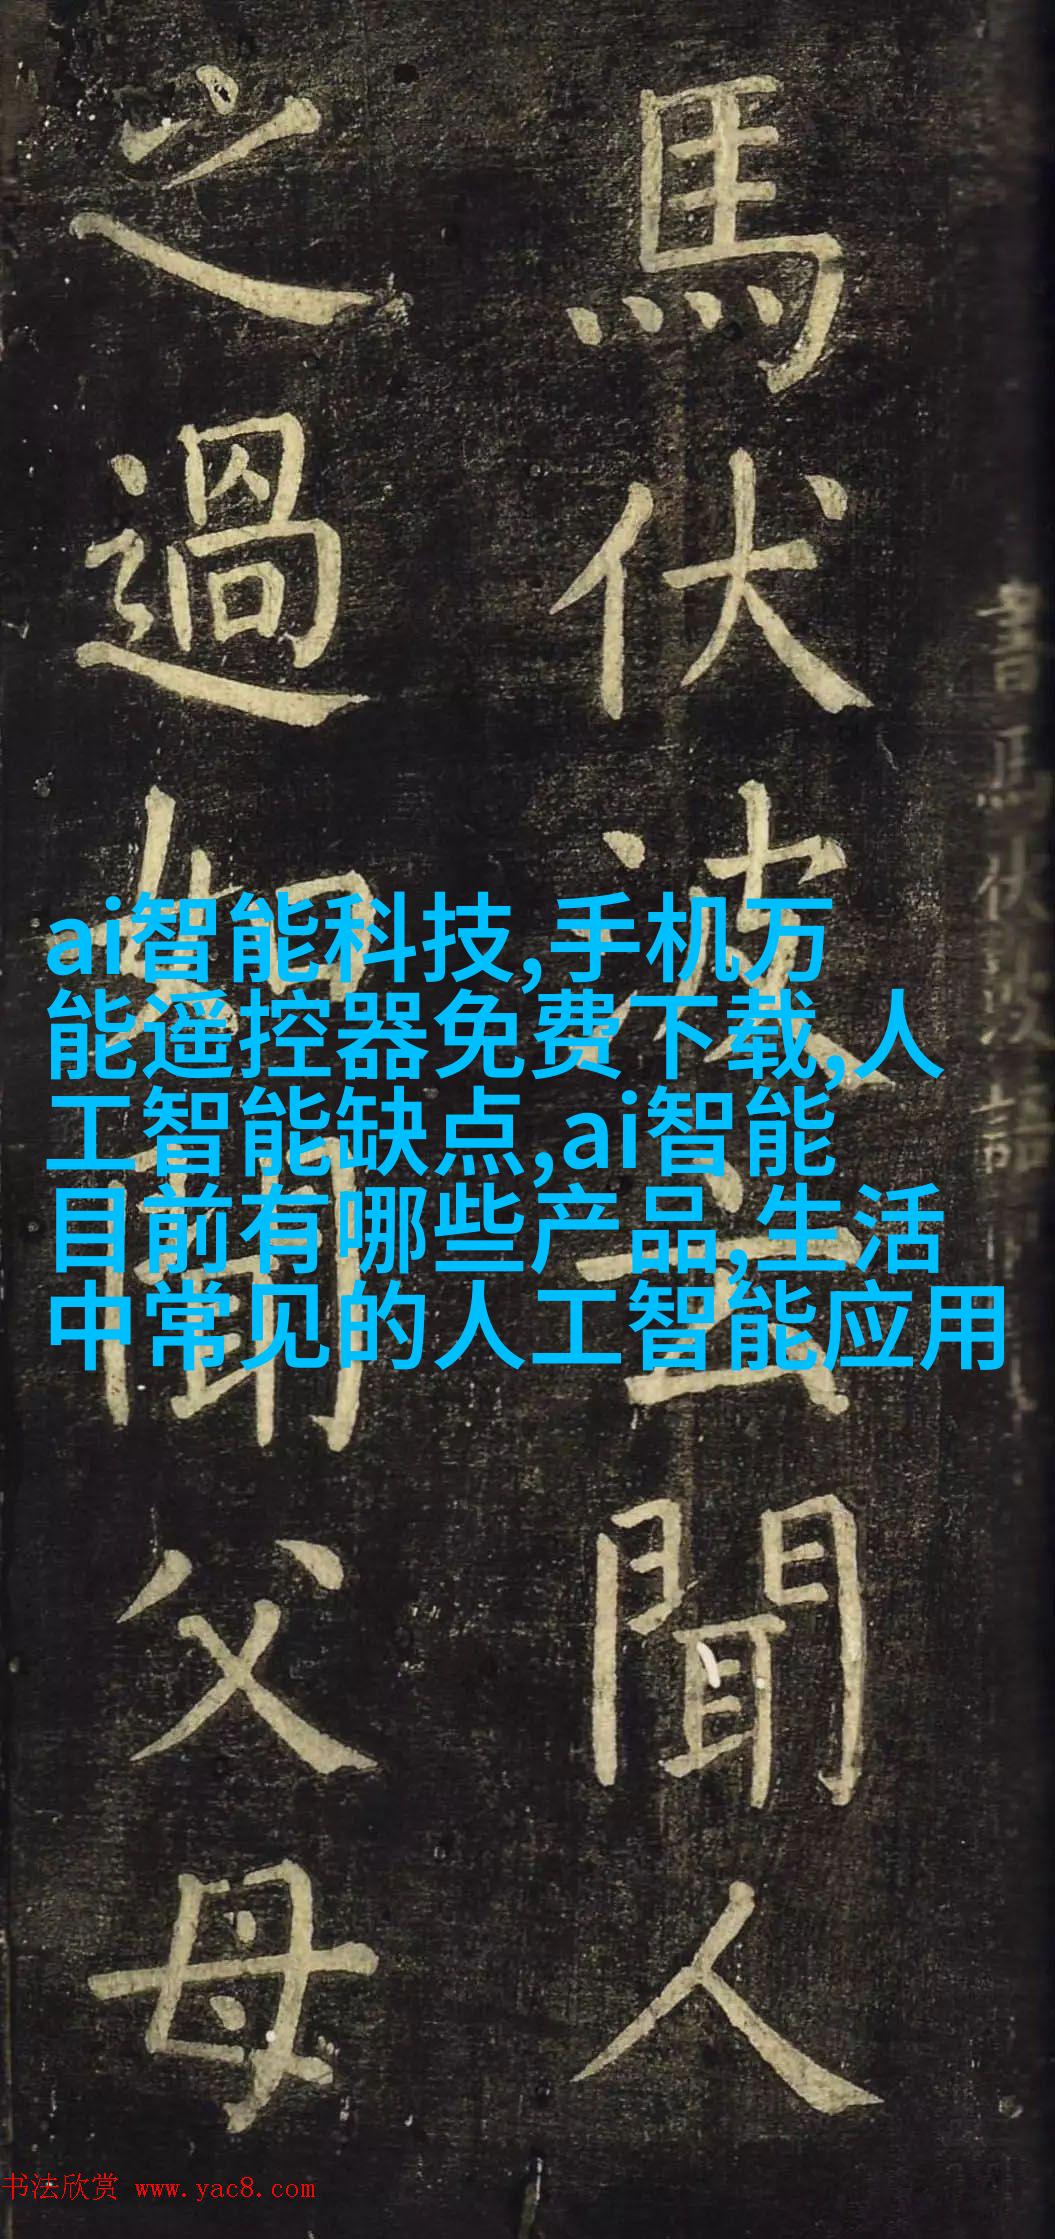 書馬伏波語
馬伏波云聞人
之過如聞父母
ai智能科技,手机万
能遥控器免费下载,人
工智能缺点,ai智能
目前有哪些产品,生活
中常见的人工智能应用
书法欣赏 www.yac8.com